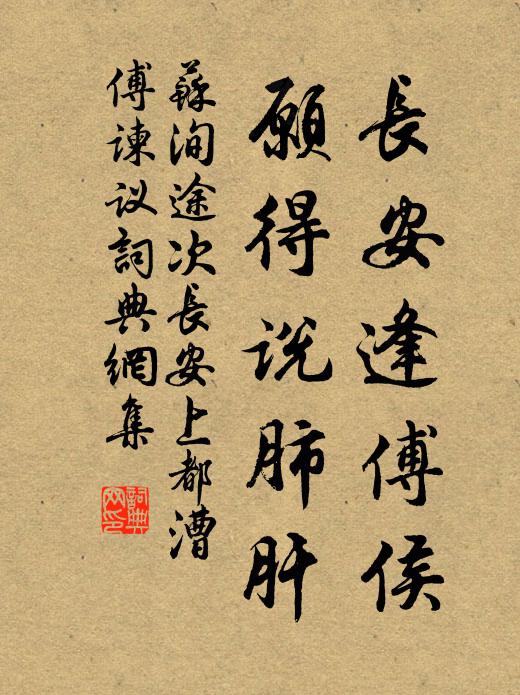 長安逢傅侯
願得说肺肝
蘇洵途次長安上都漕
傅諫议詞典網集
詞典網印